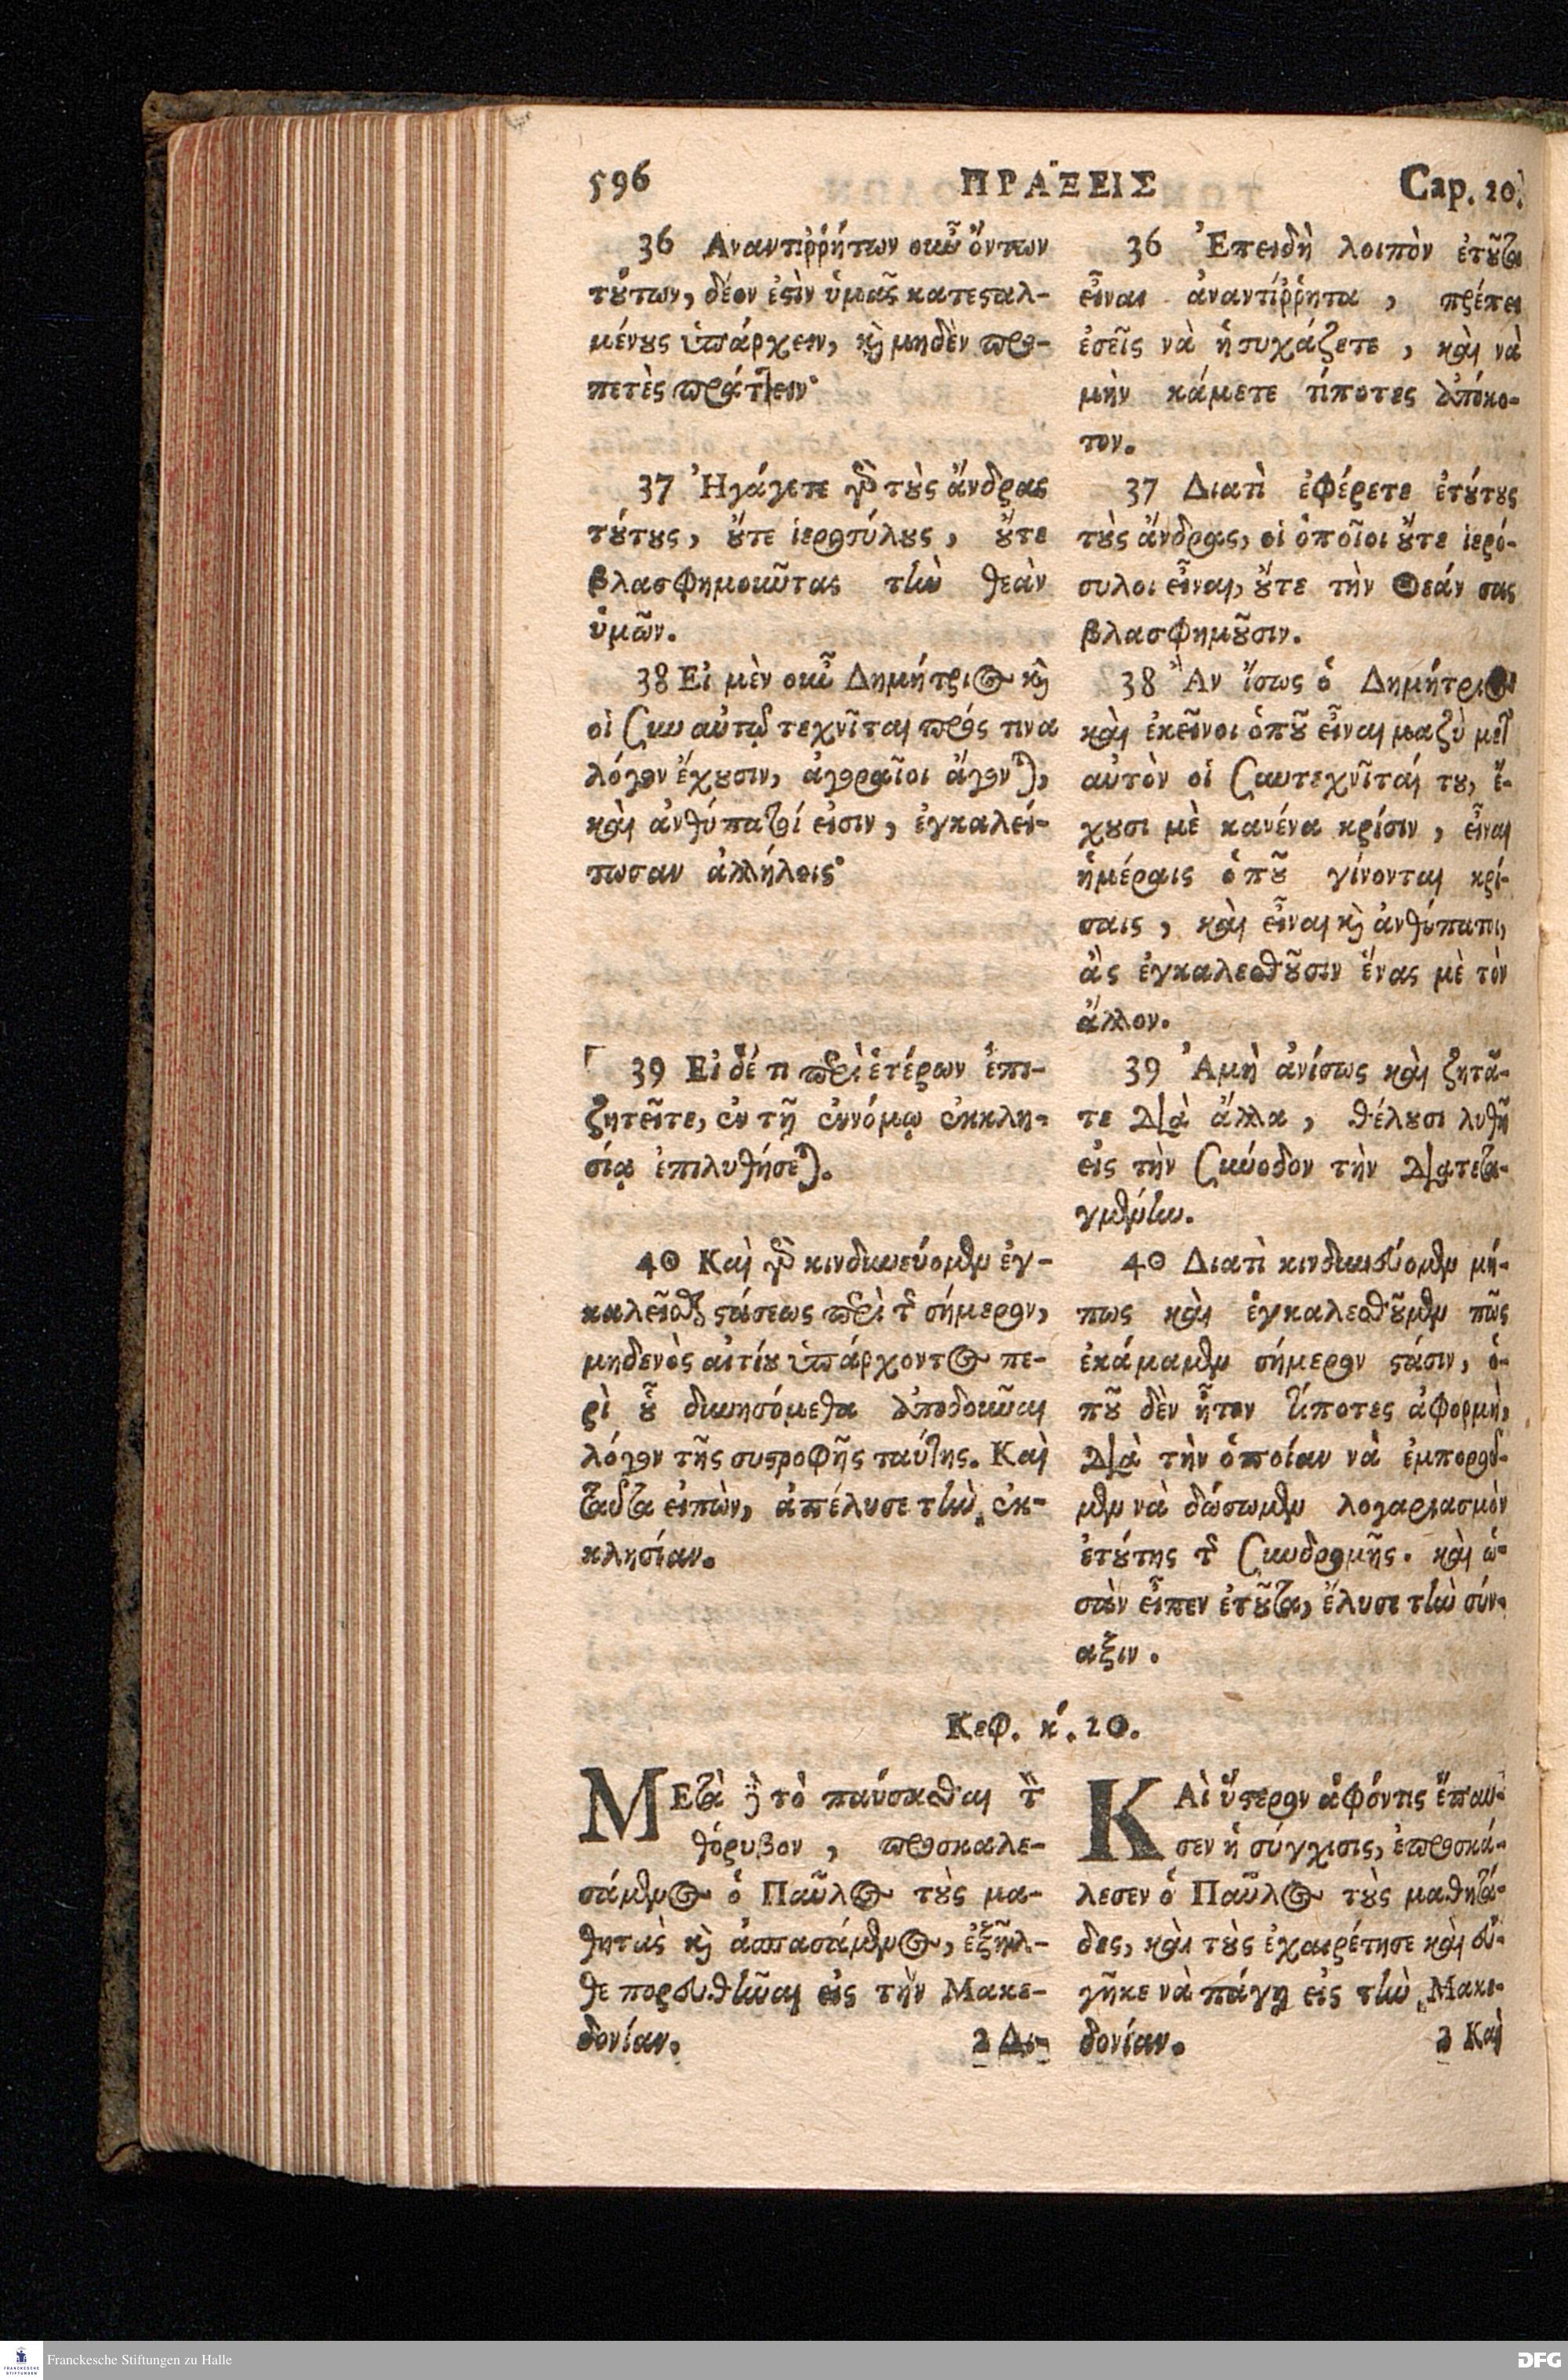 596 ΠΡΑΞΕΙΣ Cap. 20.
36 Αναντιῤῥήτων οὖν ὄντων
τούτων, δέον ἐστὶν ὑμᾶς κατεσταλ-
μένους ὑπάρχειν, καὶ μηδὲν προ-
πετὲς πράττειν·
37 Ἠγάγετε γὰρ τοὺς ἄνδρας
τούτους, οὔτε ἱεροσύλους, οὔτε
βλασφημοῦντας τὴν θεὰν
ὑμῶν.
38 Εἰ μὲν οὖν Δημήτριος καὶ
οἱ σὺν αὐτῷ τεχνῖται πρός τινα
λόγον ἔχουσιν, ἀγοραῖοι ἄγονται,
καὶ ἀνθύπατοί εἰσιν, ἐγκαλεί-
τωσαν ἀλλήλοις·
39 Εἰ δέ τι περὶ ἑτέρων ἐπι-
ζητεῖτε, ἐν τῇ ἐννόμῳ ἐκκλη-
σίᾳ ἐπιλυθήσεται.
40 Καὶ γὰρ κινδυνεύομεν ἐγ-
καλεῖσθαι στάσεως περὶ τῆς σήμερον,
μηδενὸς αἰτίου ὑπάρχοντος πε-
ρὶ οὗ δυνησόμεθα ἀποδοῦναι
λόγον τῆς συστροφῆς ταύτης. Καὶ
ταῦτα εἰπὼν, ἀπέλυσε τὴν ἐκ-
κλησίαν.
36 Ἐπειδὴ λοιπὸν ἐτοῦτα
εἶναι ἀναντίῤῥητα, πρέπει
ἐσεῖς νὰ ἡσυχάζετε, καὶ νὰ
μὴν κάμετε τίποτες ἀπόκο-
τον.
37 Διατὶ ἐφέρετε ἐτούτους
τοὺς ἄνδρας, οἱ ὁποῖοι οὔτε ἱερό-
συλοι εἶναι, οὔτε τὴν Θεάν σας
βλασφημοῦσιν.
38 Ἂν ἴσως ὁ Δημήτριος
καὶ ἐκεῖνοι ὁποῦ εἶναι μαζὺ μετ'
αὐτὸν οἱ συντεχνῖταί του, ἔ-
χουσι μὲ κανένα κρίσιν, εἶναι
ἡμέραις ὁποῦ γίνονται κρί-
σαις, καὶ εἶναι καὶ ἀνθύπατοι,
ἂς ἐγκαλεσθοῦσιν ἕνας μὲ τὸν
ἄλλον.
39 Ἀμὴ ἀνίσως καὶ ζητᾶ-
τε διὰ ἄλλα, θέλουσι λυθῆ
εἰς τὴν σύνοδον τὴν διατετα-
γμένην.
40 Διατὶ κινδυνεύομεν μή-
πως καὶ ἐγκαλεσθοῦμεν πῶς
ἐκάμαμεν σήμερον στάσιν, ὁ-
ποῦ δὲν ἦτον τίποτες ἀφορμὴ,
διὰ τὴν ὁποίαν νὰ ἐμποροῦ-
μεν νὰ δώσωμεν λογαριασμὸν
ἐτούτης τῆς συνδρομῆς. καὶ ὡ-
σὰν εἶπεν ἐτοῦτα, ἔλυσε τὴν σύν-
αξιν.
Κεφ. κ΄. 20.
ΜΕτὰ δὲ τὸ παύσασθαι τὸν
θόρυβον, προσκαλε-
σάμενος ὁ Παῦλος τοὺς μα-
θητὰς καὶ ἀσπασάμενος, ἐξῆλ-
θε πορευθῆναι εἰς τὴν Μακε-
δονίαν. 2 Δι-
ΚΑὶ ὕστερον ἀφόντις ἔπαυ-
σεν ἡ σύγχισις, ἐπροσκά-
λεσεν ὁ Παῦλος τοὺς μαθητά-
δες, καὶ τοὺς ἐχαιρέτησε καὶ εὐ-
γῆκε νὰ πάγῃ εἰς τὴν Μακε-
δονίαν. 2 Καὶ
FRANCKESCHE STIFTUNGEN
Franckesche Stiftungen zu Halle
DFG